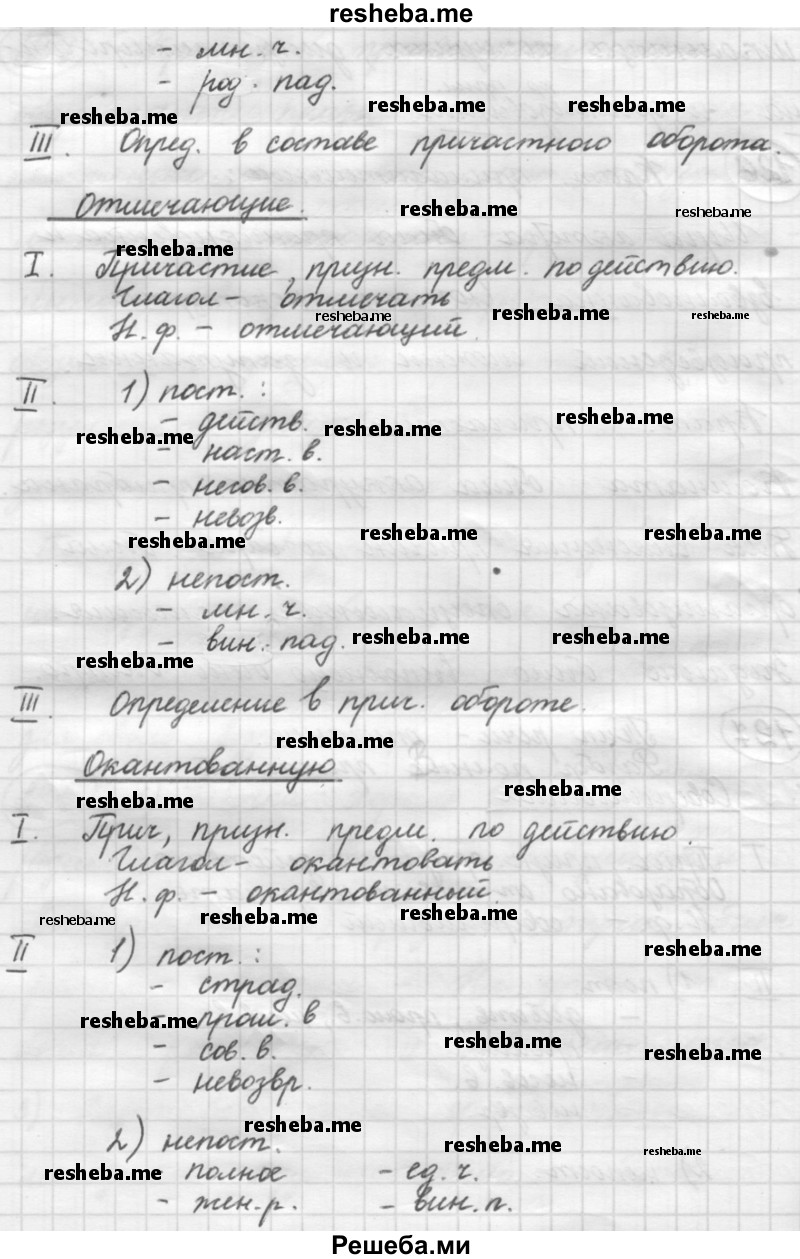 resheba.me
- мн. ч.
- род. пад.
resheba.me resheba.me resheba.me
III. Опред. в составе причастного оборота.
Отмечающие.
resheba.me resheba.me
resheba.me
I. Причастие, призн. предм. по действию.
Глагол - отмечать
resheba.me resheba.me resheba.me
Н. ф. - отмечающий.
II. 1) пост. :
- действ.
resheba.me resheba.me resheba.me
- наст. в.
- несов. в.
- невозв.
resheba.me resheba.me resheba.me
2) непост.
- мн. ч.
- вин. пад.
resheba.me resheba.me
resheba.me
III. Определение в прич. обороте.
resheba.me
Окантованную
resheba.me
resheba.me
I. Прич, призн. предм. по действию.
Глагол - окантовать
Н. ф. - окантованный.
resheba.me resheba.me resheba.me
II 1) пост. :
resheba.me
- страд.
- прош. в
resheba.me
- сов. в.
resheba.me resheba.me
- невозвр.
resheba.me
2) непост.
resheba.me resheba.me
resheba.me
- полное - ед. ч.
- жен. р. - вин. п.
Решеба.ми